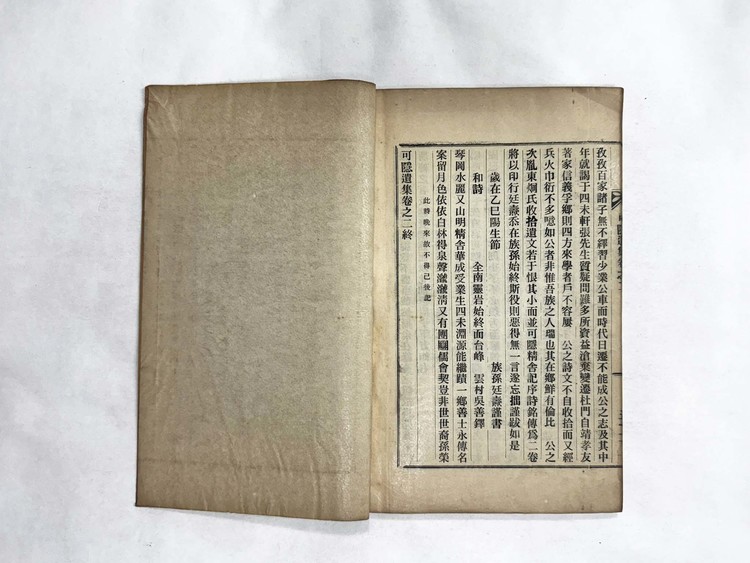 孜孜百家諸子無不繹習少業公車而時代日遷不能成公之志及其中
年就謁于四未軒張先生質疑問難多所資益滄桑變遷杜門自靖孝友
著家信義孚鄉則四方來學者戶不容屨 公之詩文不自收拾而又經
兵火巾衍不多噫如公者非惟吾族之人瑞也其在鄉鮮有倫比 公之
次胤東炯氏收拾遺文若于恨其小而並可隱精舍記序詩銘傳爲二卷
將以印行廷燾忝在族孫始終斯役則惡得無一言遂忘拙謹跋如是
歲在乙巳陽生節 族孫廷燾謹書
和詩 全南靈岩始終面台峰 雲村吳善鐸
琴岡水麗又山明精舍華成受業生四未淵源能繼蹟一鄉善士永傳名
案留月色依依白林得泉聲濊濊淸又有團圞儒會契豈非世世裔孫榮
此詩晩來故不得已後記
可隱遺集卷之二終